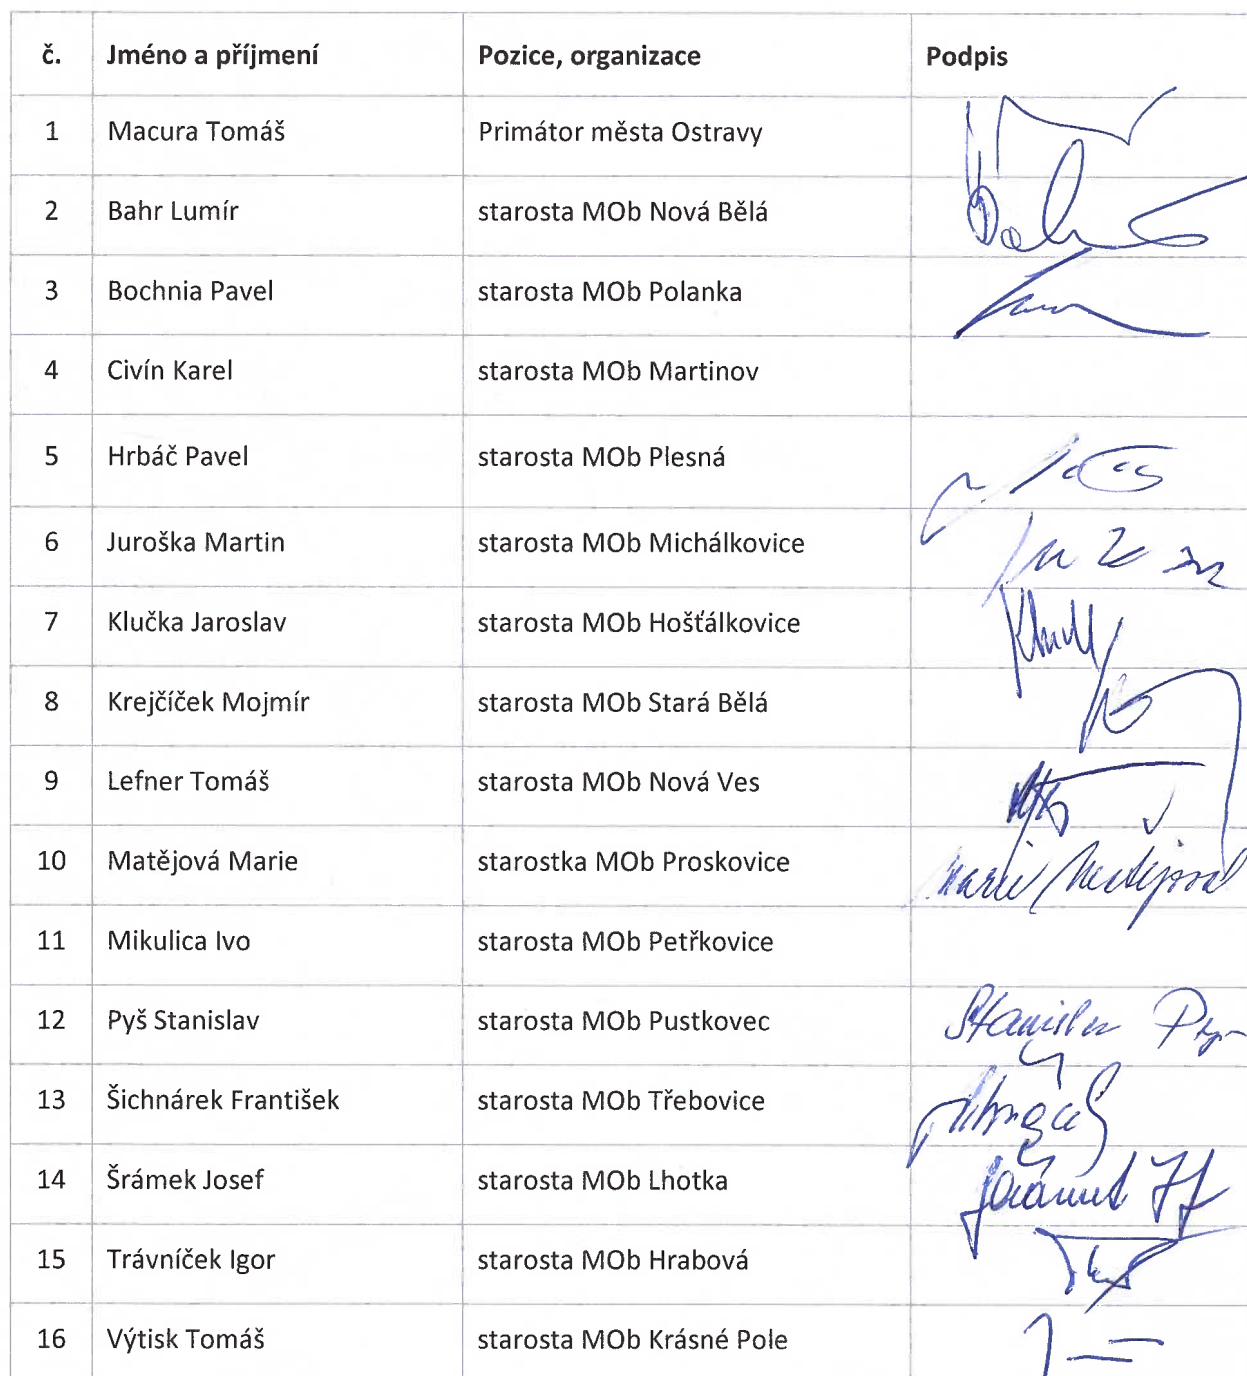 č. Jméno a příjmení Pozice, organizace Podpis
1 Macura Tomáš Primátor města Ostravy
2 Bahr Lumír starosta MOb Nová Bělá
3 Bochnia Pavel starosta MOb Polanka
4 Civín Karel starosta MOb Martinov
5 Hrbáč Pavel starosta MOb Plesná
6 Juroška Martin starosta MOb Michálkovice
7 Klučka Jaroslav starosta MOb Hošťálkovice
8 Krejčíček Mojmír starosta MOb Stará Bělá
9 Lefner Tomáš starosta MOb Nová Ves
10 Matějová Marie starostka MOb Proskovice Marie Matějová
11 Mikulica Ivo starosta MOb Petřkovice
12 Pyš Stanislav starosta MOb Pustkovec Stanislav
13 Šichnárek František starosta MOb Třebovice
14 Šrámek Josef starosta MOb Lhotka
15 Trávníček Igor starosta MOb Hrabová
16 Výtisk Tomáš starosta MOb Krásné Pole